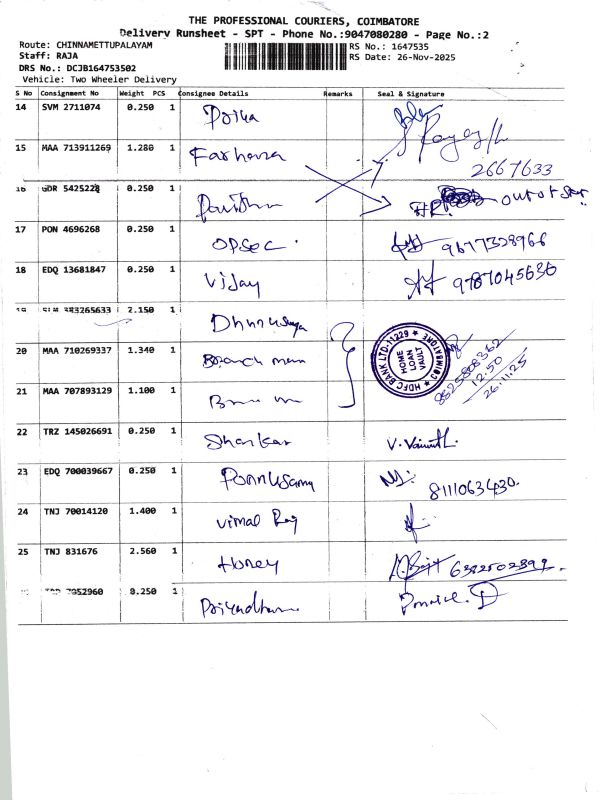 THE PROFESSIONAL COURIERS, COIMBATORE
Delivery Runsheet - SPT - Phone No.:9047080280 - Page No.:2
Route: CHINNAMETTUPALAYAM RS No.: 1647535
Staff: RAJA RS Date: 26-Nov-2025
DRS No.: DCJB164753502
Vehicle: Two Wheeler Delivery
S No Consignment No Weight PCS Consignee Details Remarks Seal & Signature
14 SVM 2711074 0.250 1 Priya
15 MAA 713911269 1.280 1 Farhana
2667633
16 GDR 5425228 0.250 1 out of
17 PON 4696268 0.250 1 OPSEC 9677328966
18 EDQ 13681847 0.250 1 Vijay 9787045636
19 383265633 2.150 1
20 MAA 710269337 1.340 1 Branch
HDFC BANK LTD-11229 COIMBATORE
HOME LOAN VAULT
8525808362
12.50
26.11.25
21 MAA 707893129 1.100 1
22 TRZ 145026691 0.250 1 Shankar
23 EDQ 700039667 0.250 1 Ponnusamy 8111063430.
24 TNJ 70014120 1.400 1 Vimal Raj
25 TNJ 831676 2.560 1 Honey 6382502899
7852960 0.250 1